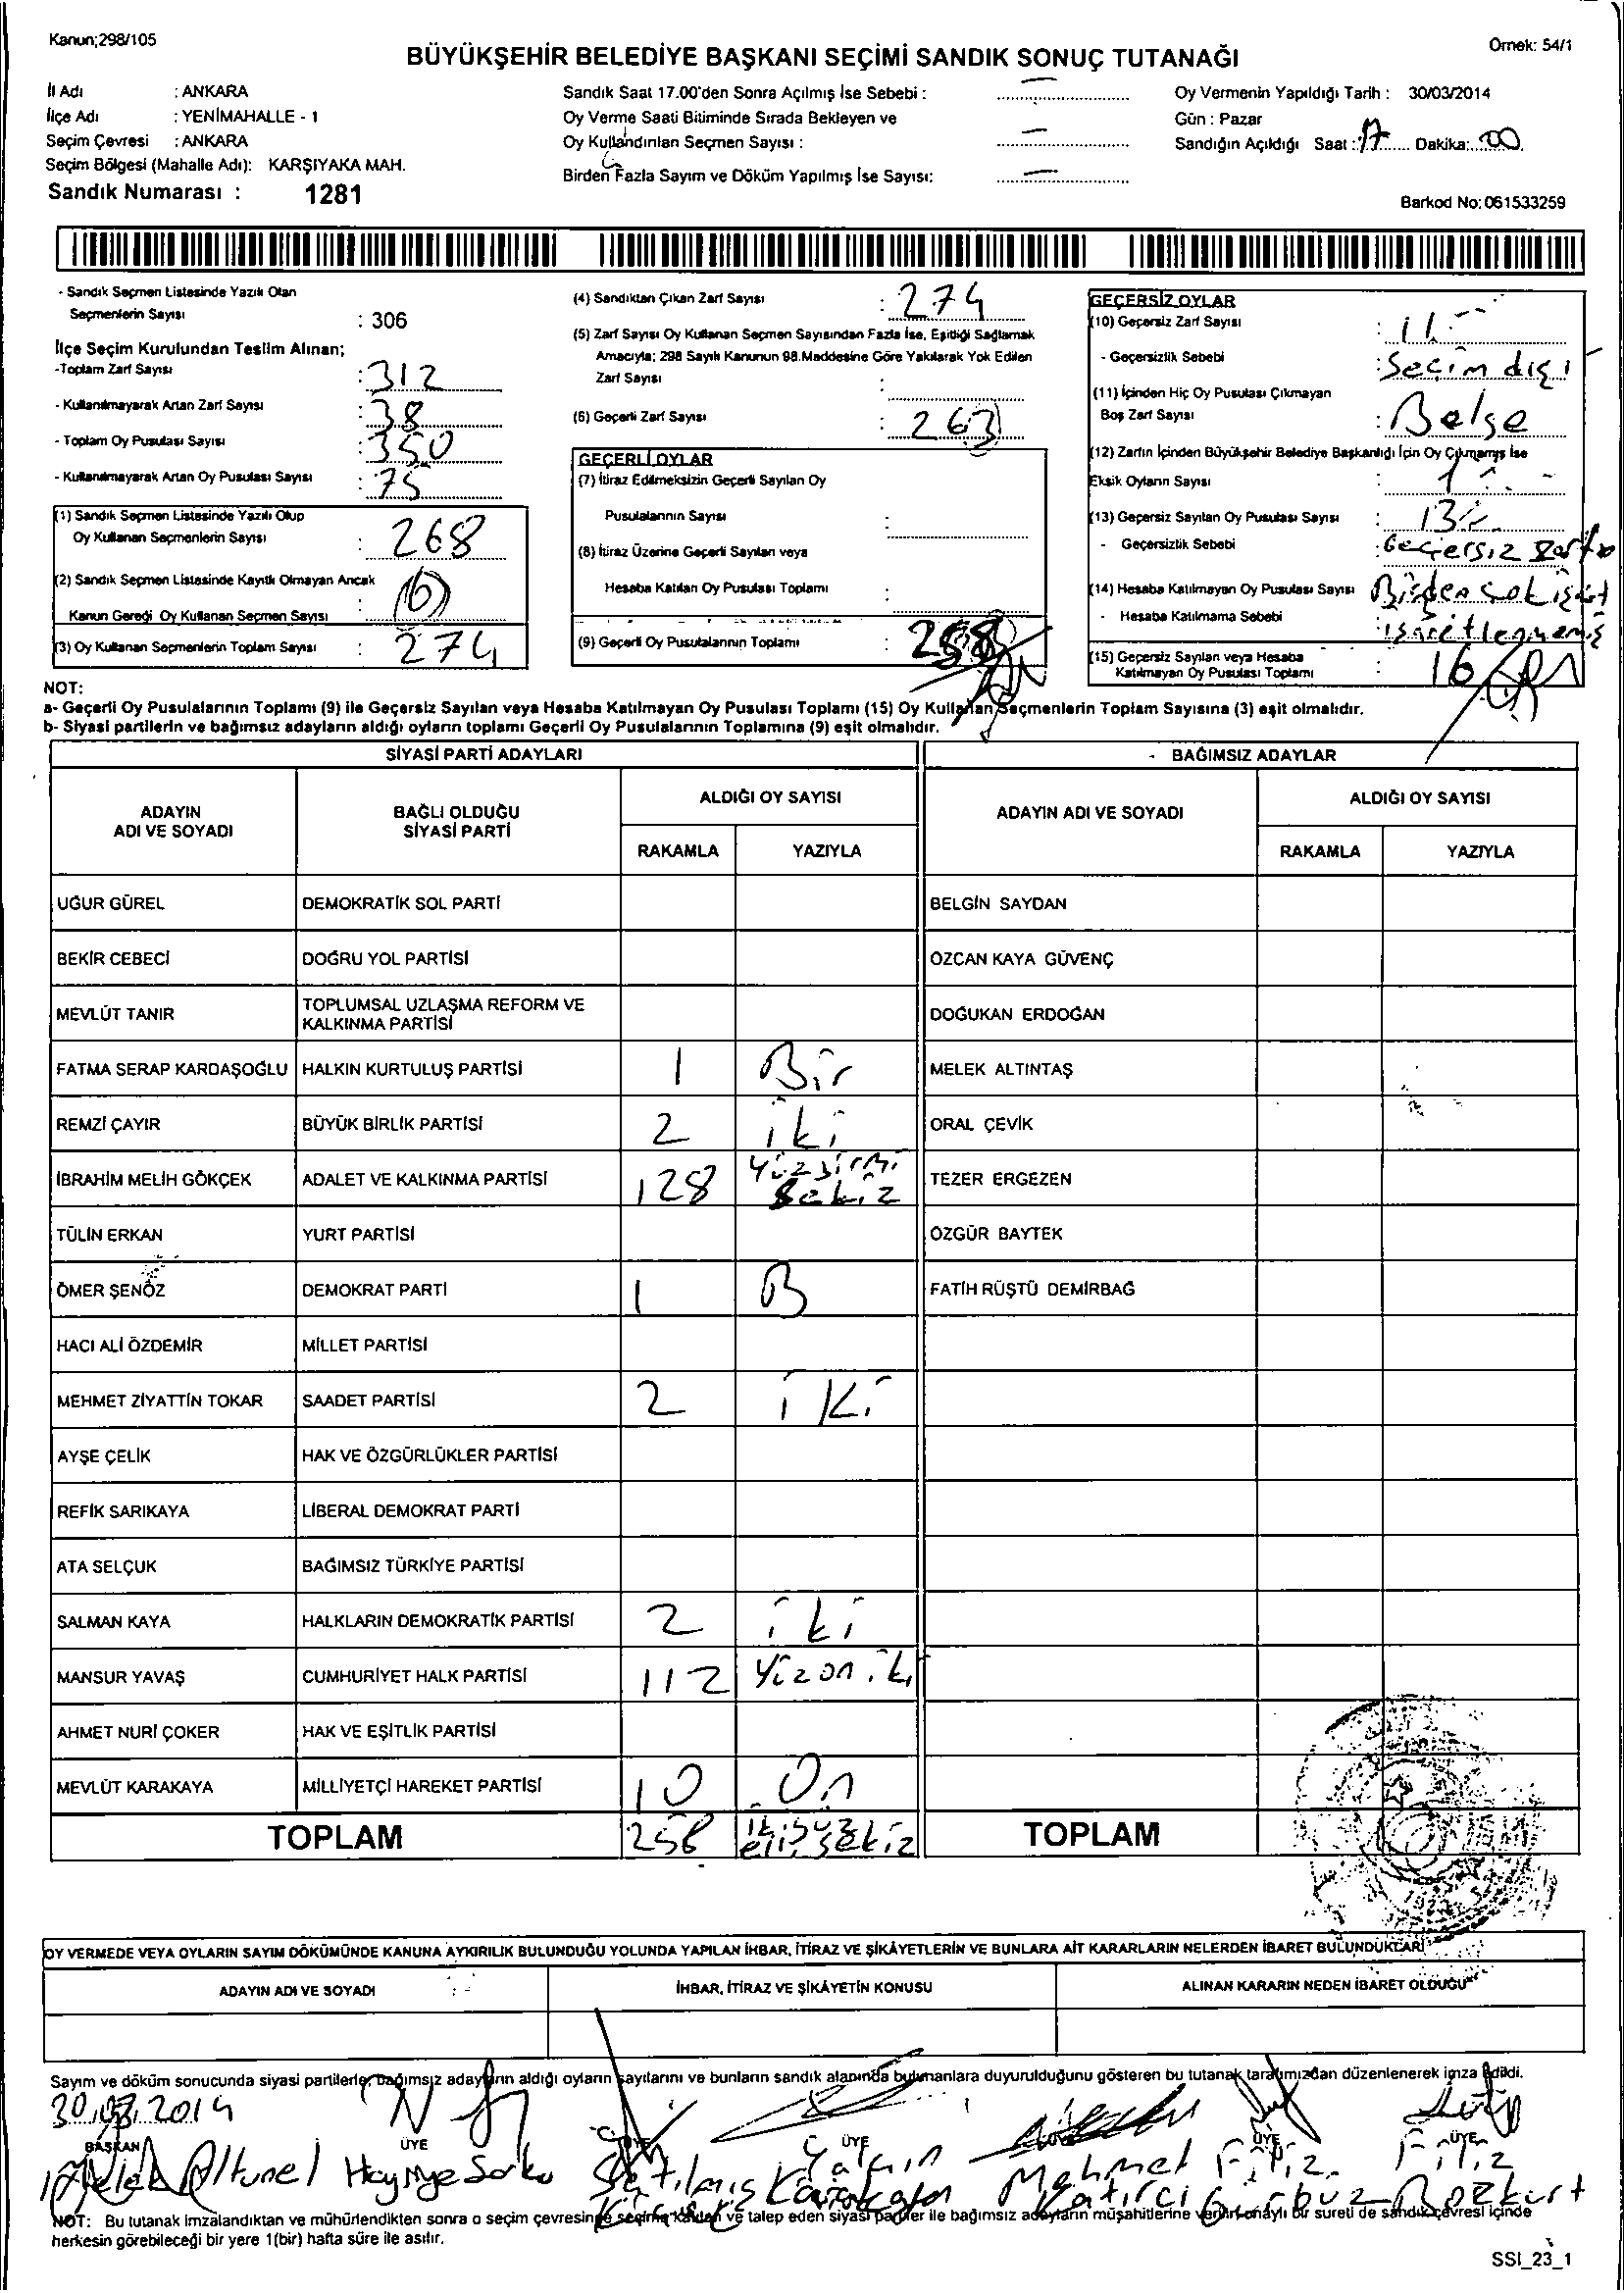 Kanun;298/105
Örnek: 54/1
BÜYÜKŞEHİR BELEDİYE BAŞKANI SEÇİMİ SANDIK SONUÇ TUTANAĞI
İl Adı : ANKARA
İlçe Adı : YENİMAHALLE - 1
Seçim Çevresi : ANKARA
Seçim Bölgesi (Mahalle Adı): KARŞIYAKA MAH.
Sandık Numarası : 1281
Sandık Saat 17.00'den Sonra Açılmış İse Sebebi : —
Oy Verme Saati Bitiminde Sırada Bekleyen ve
Oy Kullandırılan Seçmen Sayısı : —
Birden Fazla Sayım ve Döküm Yapılmış İse Sayısı: —
Oy Vermenin Yapıldığı Tarih : 30/03/2014
Gün : Pazar
Sandığın Açıldığı Saat : 17 Dakika: 00
Barkod No: 061533259
- Sandık Seçmen Listesinde Yazılı Olan
Seçmenlerin Sayısı : 306
İlçe Seçim Kurulundan Teslim Alınan;
-Toplam Zarf Sayısı : 312
- Kullanılmayarak Artan Zarf Sayısı : 38
- Toplam Oy Pusulası Sayısı : 350
- Kullanılmayarak Artan Oy Pusulası Sayısı : 75
(1) Sandık Seçmen Listesinde Yazılı Olup
Oy Kullanan Seçmenlerin Sayısı : 268
(2) Sandık Seçmen Listesinde Kayıtlı Olmayan Ancak
Kanun Gereği Oy Kullanan Seçmen Sayısı : (6)
(3) Oy Kullanan Seçmenlerin Toplam Sayısı : 274
(4) Sandıktan Çıkan Zarf Sayısı : 274
(5) Zarf Sayısı Oy Kullanan Seçmen Sayısından Fazla İse, Eşitliği Sağlamak
Amacıyla; 298 Sayılı Kanunun 98.Maddesine Göre Yakılarak Yok Edilen
Zarf Sayısı :
(6) Geçerli Zarf Sayısı : 263
GEÇERLİ OYLAR
(7) İtiraz Edilmeksizin Geçerli Sayılan Oy
Pusulalarının Sayısı :
(8) İtiraz Üzerine Geçerli Sayılan veya
Hesaba Katılan Oy Pusulası Toplamı :
(9) Geçerli Oy Pusulalarının Toplamı : 258
GEÇERSİZ OYLAR
(10) Geçersiz Zarf Sayısı : 11
- Geçersizlik Sebebi : Seçim dışı
(11) İçinden Hiç Oy Pusulası Çıkmayan
Boş Zarf Sayısı : Belge
(12) Zarfın İçinden Büyükşehir Belediye Başkanlığı İçin Oy Çıkmamış İse
Eksik Oyların Sayısı : 1
(13) Geçersiz Sayılan Oy Pusulası Sayısı : 13
- Geçersizlik Sebebi : Geçersiz
(14) Hesaba Katılmayan Oy Pusulası Sayısı Birden çok işaret
- Hesaba Katılmama Sebebi : işaretlenmemiş
(15) Geçersiz Sayılan veya Hesaba
Katılmayan Oy Pusulası Toplamı : 16
NOT:
a- Geçerli Oy Pusulalarının Toplamı (9) ile Geçersiz Sayılan veya Hesaba Katılmayan Oy Pusulası Toplamı (15) Oy Kullanan Seçmenlerin Toplam Sayısına (3) eşit olmalıdır.
b- Siyasi partilerin ve bağımsız adayların aldığı oyların toplamı Geçerli Oy Pusulalarının Toplamına (9) eşit olmalıdır.
SİYASİ PARTİ ADAYLARI
- BAĞIMSIZ ADAYLAR
ADAYIN ADI VE SOYADI
BAĞLI OLDUĞU SİYASİ PARTİ
ALDIĞI OY SAYISI
RAKAMLA YAZIYLA
ADAYIN ADI VE SOYADI
ALDIĞI OY SAYISI
RAKAMLA YAZIYLA
UĞUR GÜREL DEMOKRATİK SOL PARTİ BELGİN SAYDAN
BEKİR CEBECİ DOĞRU YOL PARTİSİ ÖZCAN KAYA GÜVENÇ
MEVLÜT TANIR TOPLUMSAL UZLAŞMA REFORM VE KALKINMA PARTİSİ DOĞUKAN ERDOĞAN
FATMA SERAP KARDAŞOĞLU HALKIN KURTULUŞ PARTİSİ 1 Bir MELEK ALTINTAŞ
REMZİ ÇAYIR BÜYÜK BİRLİK PARTİSİ 2 iki ORAL ÇEVİK
İBRAHİM MELİH GÖKÇEK ADALET VE KALKINMA PARTİSİ 128 Yüzyirmi Sekiz TEZER ERGEZEN
TÜLİN ERKAN YURT PARTİSİ ÖZGÜR BAYTEK
ÖMER ŞENÖZ DEMOKRAT PARTİ 1 B FATİH RÜŞTÜ DEMİRBAĞ
HACI ALİ ÖZDEMİR MİLLET PARTİSİ
MEHMET ZİYATTİN TOKAR SAADET PARTİSİ 2 iKi
AYŞE ÇELİK HAK VE ÖZGÜRLÜKLER PARTİSİ
REFİK SARIKAYA LİBERAL DEMOKRAT PARTİ
ATA SELÇUK BAĞIMSIZ TÜRKİYE PARTİSİ
SALMAN KAYA HALKLARIN DEMOKRATİK PARTİSİ 2 iki
MANSUR YAVAŞ CUMHURİYET HALK PARTİSİ 112 Yüzoniki
AHMET NURİ ÇOKER HAK VE EŞİTLİK PARTİSİ
MEVLÜT KARAKAYA MİLLİYETÇİ HAREKET PARTİSİ 10 On
TOPLAM 258 ikiyüz elli sekiz TOPLAM
OY VERMEDE VEYA OYLARIN SAYIM DÖKÜMÜNDE KANUNA AYKIRILIK BULUNDUĞU YOLUNDA YAPILAN İHBAR, İTİRAZ VE ŞİKÂYETLERİN VE BUNLARA AİT KARARLARIN NELERDEN İBARET BULUNDUKLARI
ADAYIN ADI VE SOYADI İHBAR, İTİRAZ VE ŞİKÂYETİN KONUSU ALINAN KARARIN NEDEN İBARET OLDUĞU
Sayım ve döküm sonucunda siyasi partilerle, bağımsız adayların aldığı oyların sayılarını ve bunların sandık alanında bulunanlara duyurulduğunu gösteren bu tutanak tarafımızdan düzenlenerek imza edildi.
30/03/2014
BAŞKAN ÜYE ÜYE ÜYE ÜYE ÜYE
Melek Altunel Hayriye Satılmış Yalçın Karakaya Mehmet Katırcı Filiz Gürbüz Filiz Bozkurt
NOT: Bu tutanak imzalandıktan ve mühürlendikten sonra o seçim çevresinde seçime katılan ve talep eden siyasi partiler ile bağımsız adayların müşahitlerine verilir onaylı bir sureti de sandık çevresi içinde
herkesin görebileceği bir yere 1(bir) hafta süre ile asılır.
SSI_23_1